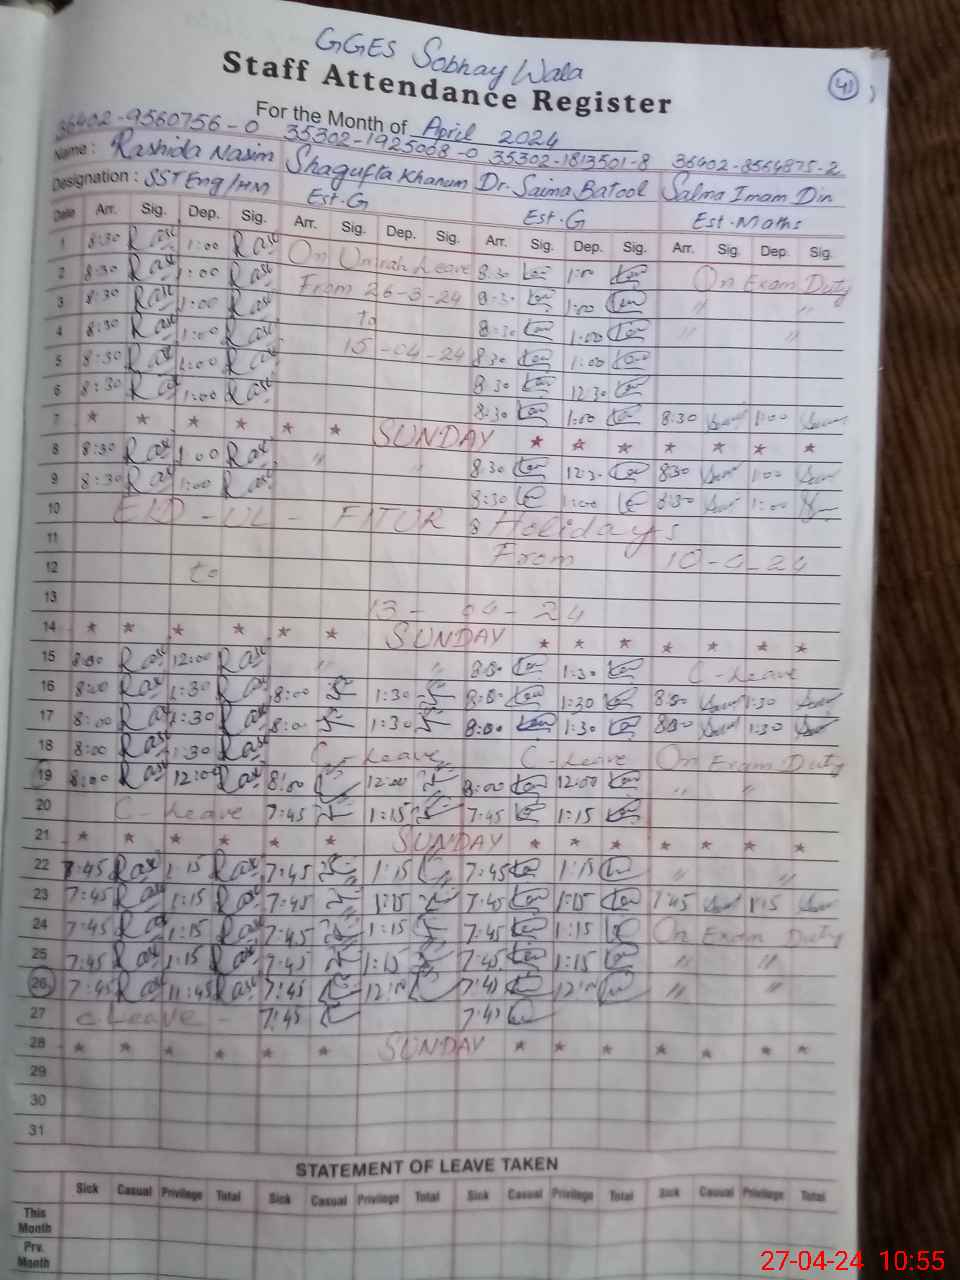 GGES Sobhay Wala
41
Staff Attendance Register
For the Month of April 2024
36402-9560756-0 35302-1925008-0 35302-1813501-8 36402-8564875-2
Name : Rashida Nasim Shagufta Khanum Dr. Saima Batool Salma Imam Din
Designation : SST Eng/HM Est-G Est-G Est-Maths
Date Arr. Sig. Dep. Sig. Arr. Sig. Dep. Sig. Arr. Sig. Dep. Sig. Arr. Sig. Dep. Sig.
1 8:30 1:00 On Umrah Leave 8:30 1:00 On Exam Duty
2 8:30 1:00 From 26-3-24 8:30 1:00 " "
3 8:30 1:00 to 8:30 1:00 " "
4 8:30 1:00 15-04-24 8:30 1:00
5 8:30 1:00 8:30 12:30
6 8:30 1:00 8:30 1:00 8:30 1:00
7 * * * * * * SUNDAY * * * * * * *
8 8:30 1:00 " " 8:30 12:30 8:30 1:00
9 8:30 1:00 8:30 1:00 8:30 1:00
10 EID-UL-FITUR Holidays
11 From 10-4-24
12 to
13 13-04-24
14 * * * * * * SUNDAY * * * * * * *
15 8:00 12:00 " " 8:00 1:30 C-Leave
16 8:00 1:30 8:00 1:30 8:00 1:30 8:00 1:30
17 8:00 1:30 8:00 1:30 8:00 1:30 8:00 1:30
18 8:00 1:30 C-Leave C-Leave On Exam Duty
19 8:00 12:00 8:00 12:00 8:00 12:00 " "
20 C-Leave 7:45 1:15 7:45 1:15
21 * * * * * * SUNDAY * * * * * * *
22 7:45 1:15 7:45 1:15 7:45 1:15 " "
23 7:45 1:15 7:45 1:15 7:45 1:15 7:45 1:15
24 7:45 1:15 7:45 1:15 7:45 1:15 On Exam Duty
25 7:45 1:15 7:45 1:15 7:45 1:15 " "
26 7:45 11:45 7:45 12:00 7:45 12:00 " "
27 C-Leave - 7:45 7:45
28 * * * * * * SUNDAY * * * * * * *
29
30
31
STATEMENT OF LEAVE TAKEN
Sick Casual Privilege Total Sick Casual Privilege Total Sick Casual Privilege Total Sick Casual Privilege Total
This Month
Prv. Month
27-04-24 10:55